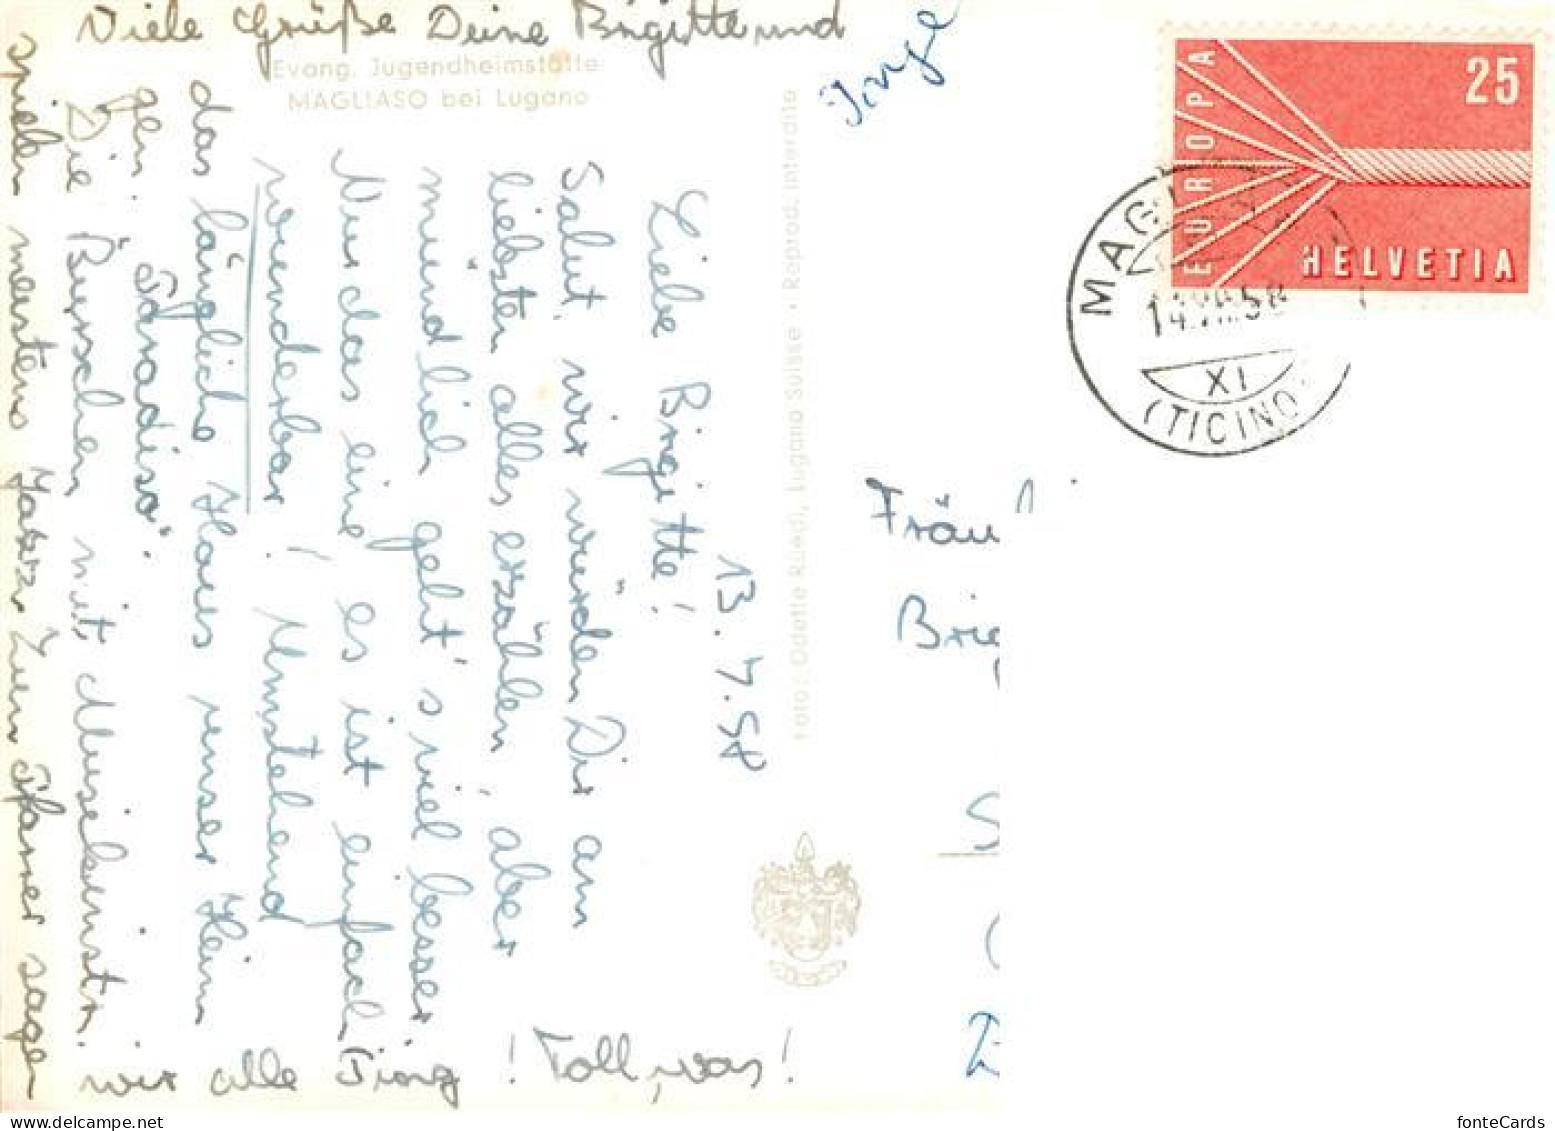 Evang. Jugendheimstätte
MAGLIASO bei Lugano
13.7.58
Liebe Brigitte!
Salut, wir würden Dir am
liebsten alles erzählen, aber
mündlich geht's viel besser
Nur das eine: es ist einfach
wunderbar! Umstehend
das längliche Haus unser Heim
gen. "Paradiso".
Die Burschen mit Musikinstr.
spielen meistens Jazz. Zum Pfarrer sagen
wir alle Tiong! Toll, was!
Viele Grüße Deine Brigitte und
Inge
Foto: Odette Rüedi, Lugano Suisse • Reprod. interdite
EUROPA
25
HELVETIA
MAG
14.VII.58
XI
(TICINO)
Fräul
Brig
S